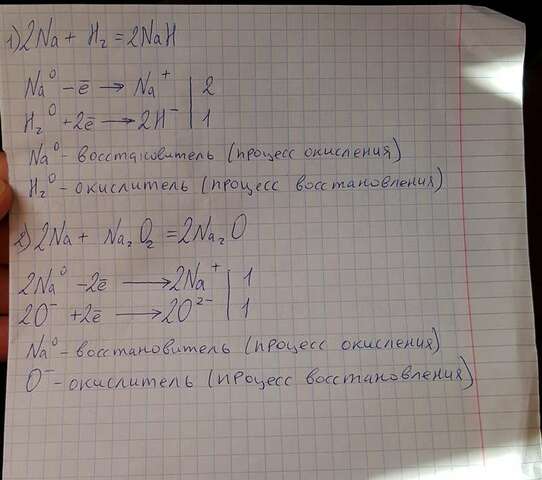 1) 2Na + H₂ = 2NaH
Na⁰ - ē → Na⁺ | 2
H₂⁰ + 2ē → 2H⁻ | 1
Na⁰ - восстановитель (процесс окисления)
H₂⁰ - окислитель (процесс восстановления)
2) 2Na + Na₂O₂ = 2Na₂O
2Na⁰ - 2ē → 2Na⁺ | 1
2O⁻ + 2ē → 2O²⁻ | 1
Na⁰ - восстановитель (процесс окисления)
O⁻ - окислитель (процесс восстановления)